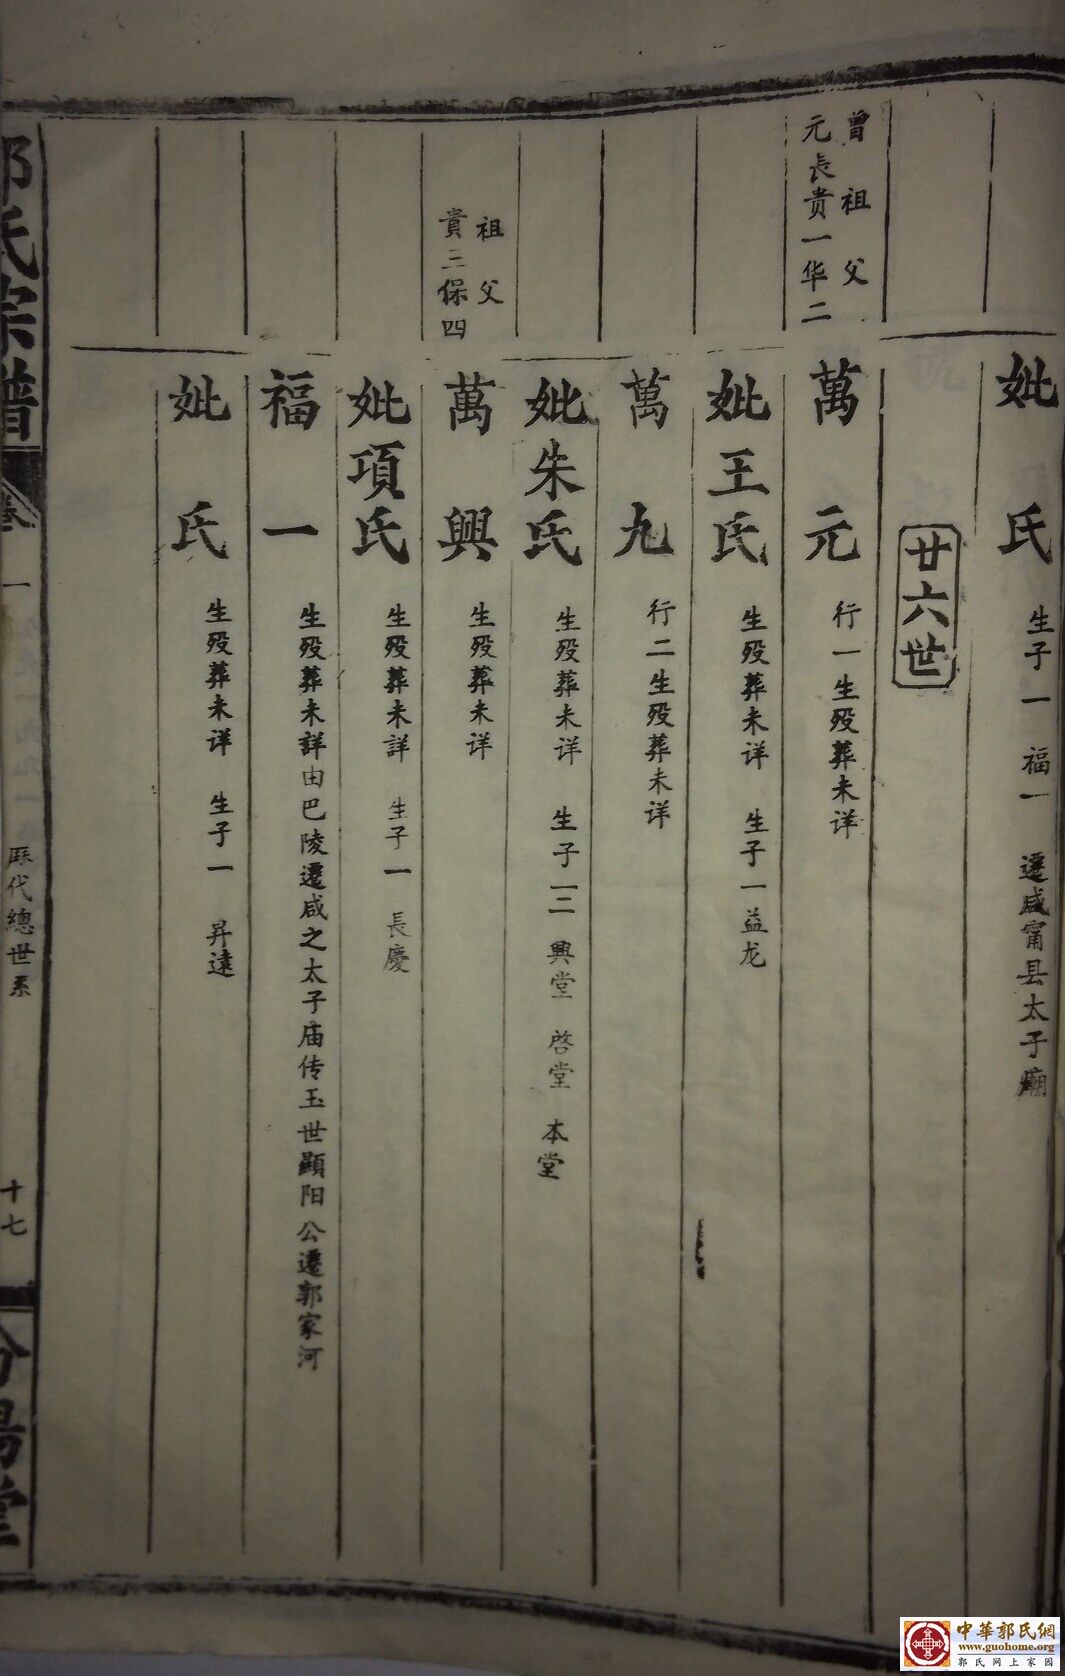 妣 氏 生子一 福一 遷咸甯县太子廟
廿六世
曾祖父
元長貴一华二
萬元 行一生殁葬未详
妣王氏 生殁葬未详 生子一益龙
萬九 行二生殁葬未详
妣朱氏 生殁葬未详 生子三 興堂 啓堂 本堂
祖父
貴三保四
萬興 生殁葬未详
妣項氏 生殁葬未詳 生子一 長慶
福一 生殁葬未詳由巴陵遷咸之太子庙传玉世顯阳公遷郭家河
妣 氏 生殁葬未详 生子一 昇遠
郭氏宗譜
卷一
厤代總世系
十七
汾陽堂
中華郭氏網
www.guohome.org
郭氏网上家园